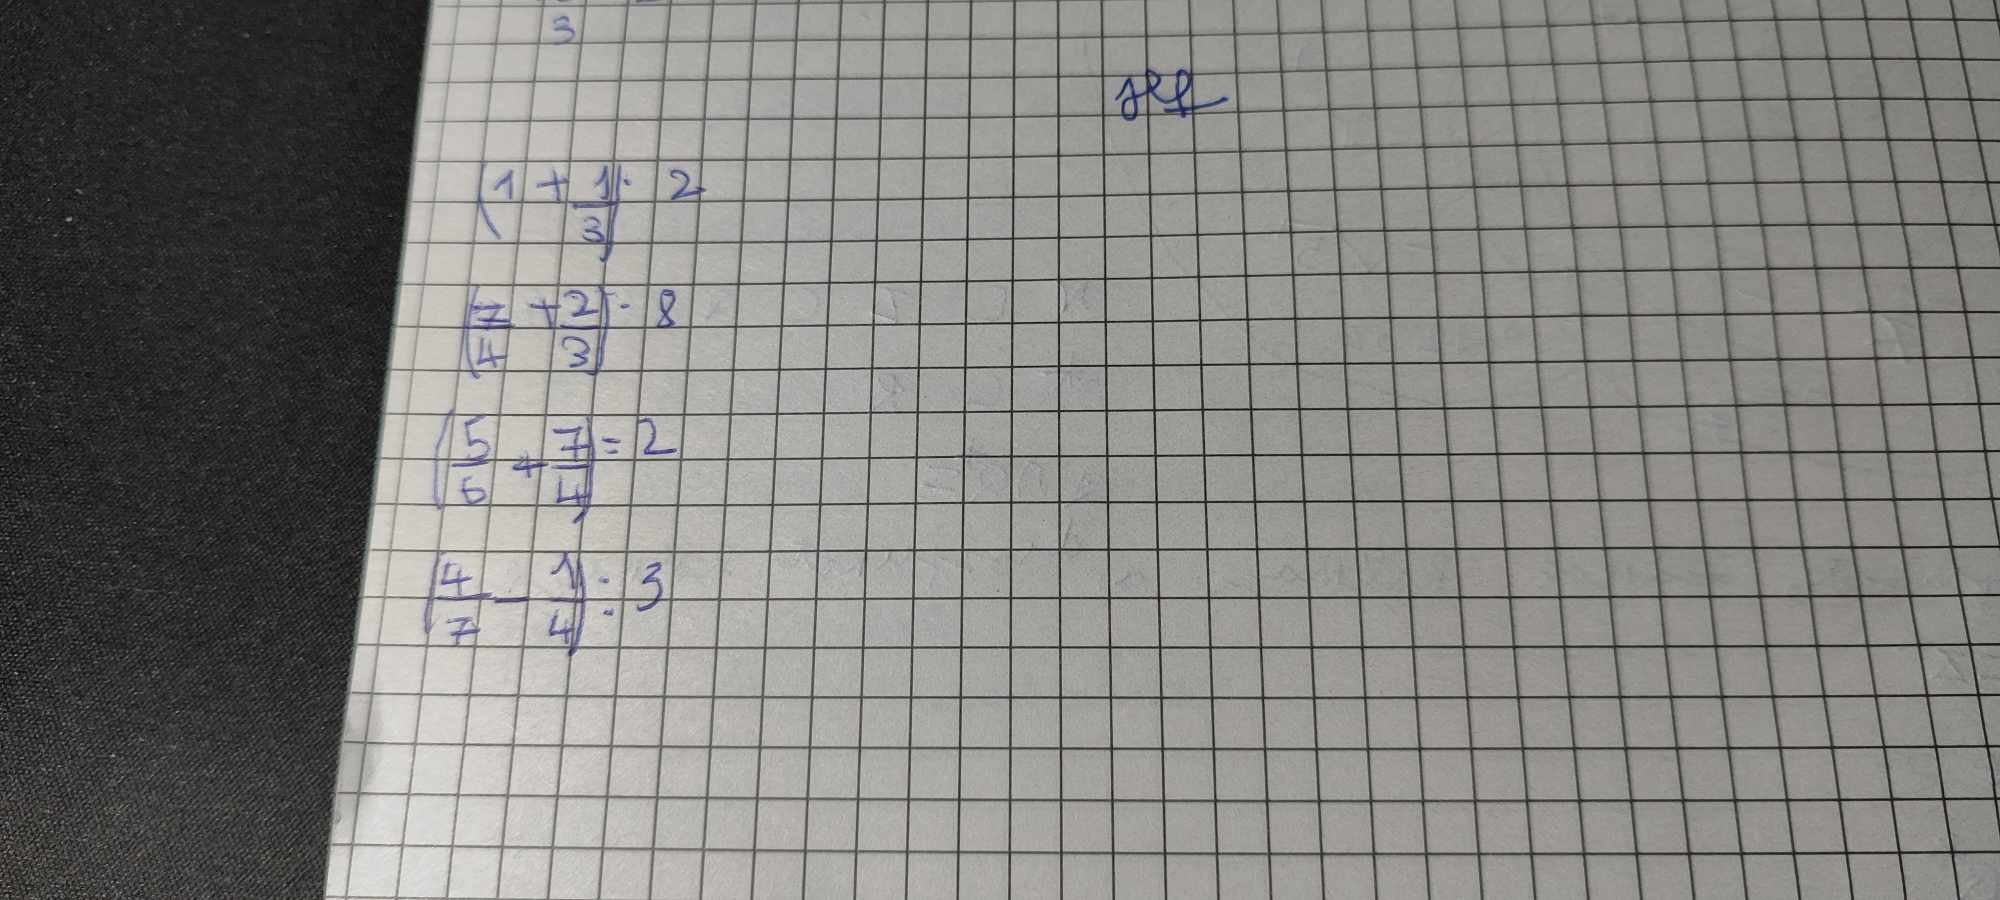 3
(1 + 1/3) · 2
(7/4 + 2/3) · 8
(5/6 + 7/4) = 2
(4/7 - 1/4) : 3